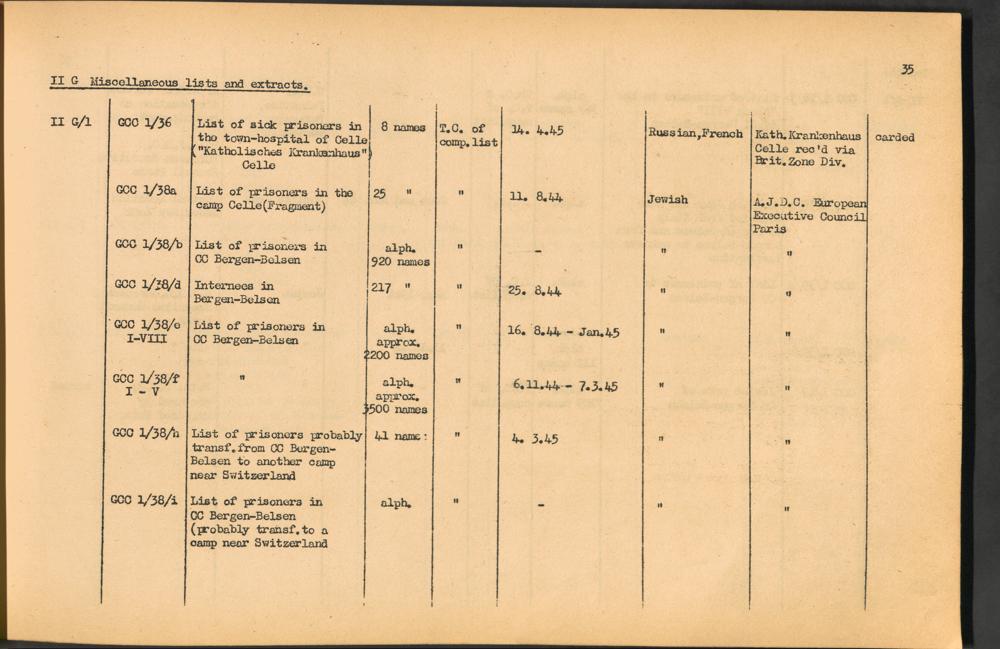 35
II G Miscellaneous lists and extracts.
II G/1 GCC 1/36 List of sick prisoners in 8 names T.C. of 14. 4.45 Russian,French Kath.Krankenhaus carded
the town-hospital of Celle comp.list Celle rec'd via
("Katholisches Krankenhaus") Brit.Zone Div.
Celle
GCC 1/38a List of prisoners in the 25 " " 11. 8.44 Jewish A.J.D.C. European
camp Celle(Fragment) Executive Council
Paris
GCC 1/38/b List of prisoners in alph. " - " "
CC Bergen-Belsen 920 names
GCC 1/38/d Internees in 217 " " 25. 8.44 " "
Bergen-Belsen
GCC 1/38/e List of prisoners in alph. " 16. 8.44 - Jan.45 " "
I-VIII CC Bergen-Belsen approx.
2200 names
GCC 1/38/f " alph. " 6.11.44 - 7.3.45 " "
I - V approx.
3500 names
GCC 1/38/h List of prisoners probably 41 name: " 4. 3.45 " "
transf.from CC Bergen-
Belsen to another camp
near Switzerland
GCC 1/38/i List of prisoners in alph. " - " "
CC Bergen-Belsen
(probably transf.to a
camp near Switzerland